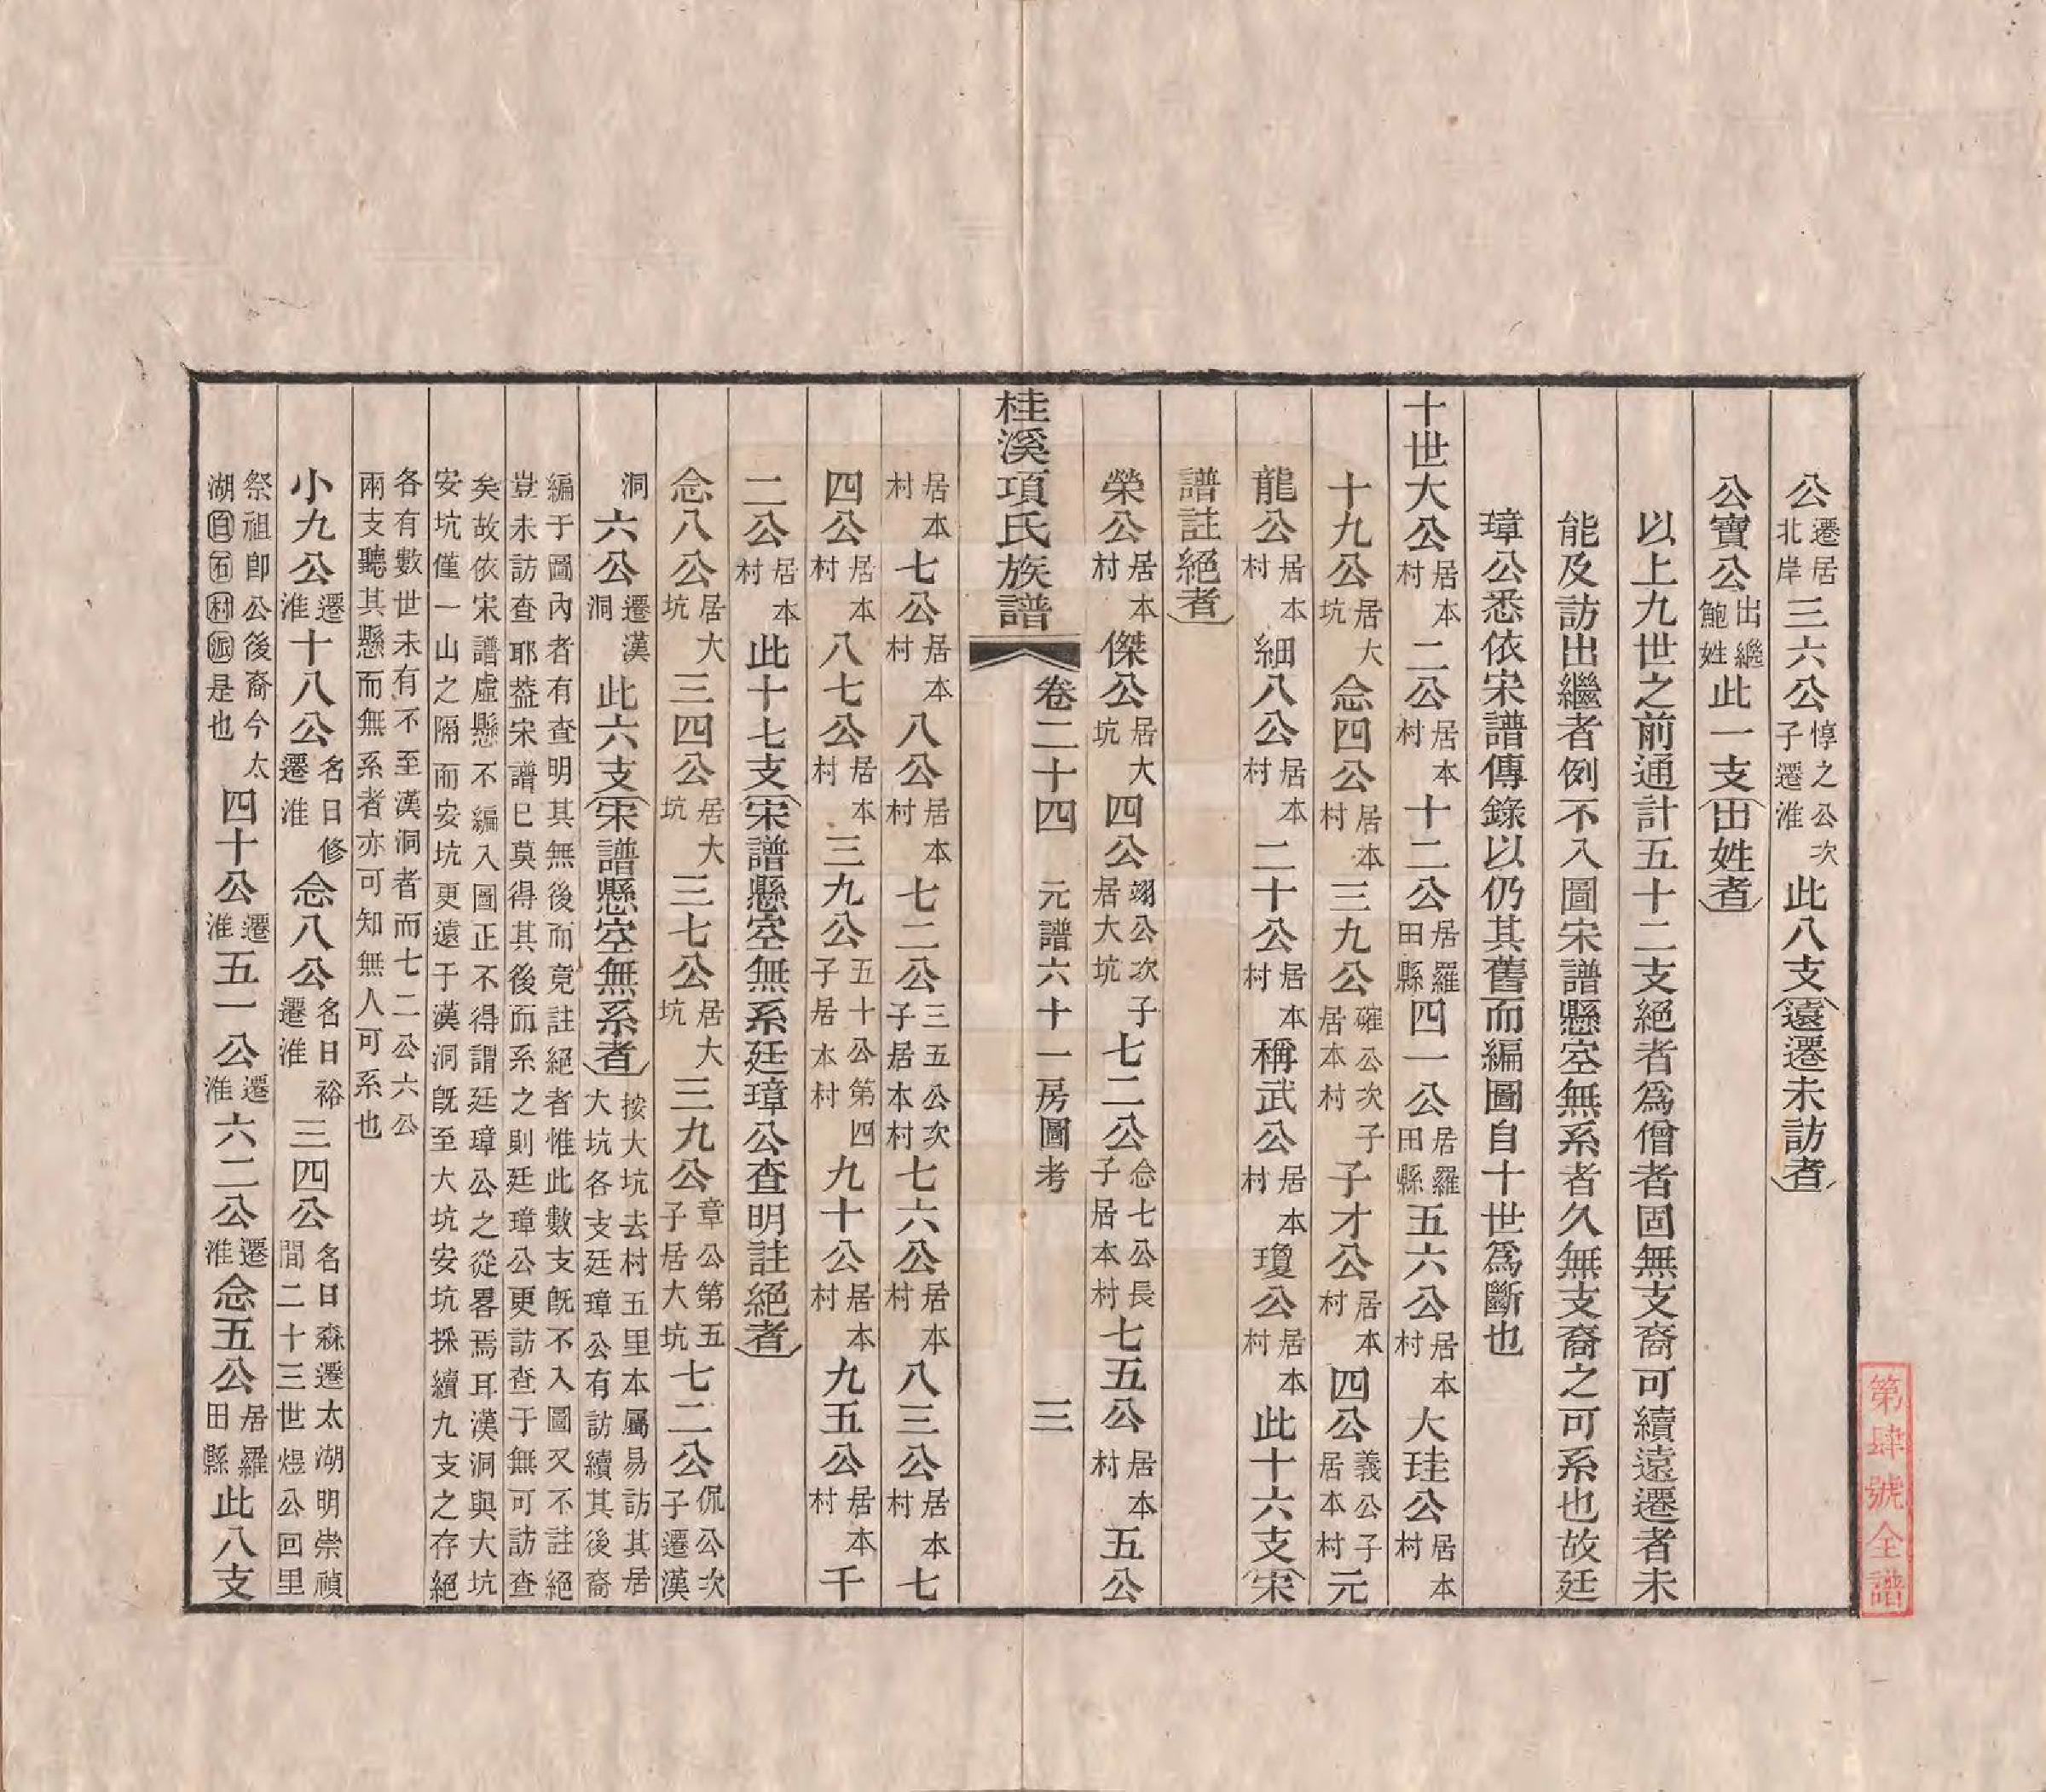 公遷居北岸三六公惇之公次子遷淮此八支遠遷未訪者
公寶公出繼鮑姓此一支出姓者
以上九世之前通計五十二支絕者為僧者固無支裔可續遠遷者未
能及訪出繼者例不入圖宋譜懸空無系者久無支裔之可系也故廷
璋公悉依宋譜傳錄以仍其舊而編圖自十世爲斷也
十世大公居本村二公居本村十二公居羅田縣四一公居羅田縣五六公居本村大珪公居本村
十九公居大坑念四公居本村三九公確公次子居本村子才公居本村四公義公子居本村元
龍公居本村細八公居本村二十公居本村稱武公居本村瓊公居本村此十六支宋
譜註絕者
榮公居本村傑公居大坑四公翊公次子居大坑七二公念七公長子居本村七五公居本村五公
桂溪項氏族譜 卷二十四 元譜六十一房圖考 三
居本村七公居本村八公居本村七二公三五公次子居本村七六公居本村八三公居本村七
四公居本村八七公居本村三九公五十公第四子居本村九十公居本村九五公居本村千
二公居本村此十七支宋譜懸空無系廷璋公查明註絕者
念八公居大坑三四公居大坑三七公居大坑三九公章公第五子居大坑七二公侃公次子遷漢
洞六公遷漢洞此六支宋譜懸空無系者按大坑去村五里本屬易訪其居大坑各支廷璋公有訪續其後裔
編于圖內者有查明其無後而竟註絕者惟此數支旣不入圖又不註絕豈未訪查耶葢宋譜已莫得其後而系之則廷璋公更訪查于無可訪查
矣故依宋譜虛懸不編入圖正不得謂廷璋公之從畧焉耳漢洞與大坑安坑僅一山之隔而安坑更遠于漢洞旣至大坑安坑採續九支之存絕
各有數世未有不至漢洞者而七二公六公兩支聽其懸而無系者亦可知無人可系也
小九公遷淮十八公名曰修遷淮念八公名曰裕遷淮三四公名曰森遷太湖明崇禎間二十三世煜公回里
祭祖卽公後裔今太湖白石村派是也四十公遷淮五一公遷淮六二公遷淮念五公居羅田縣此八支
第肆號全譜